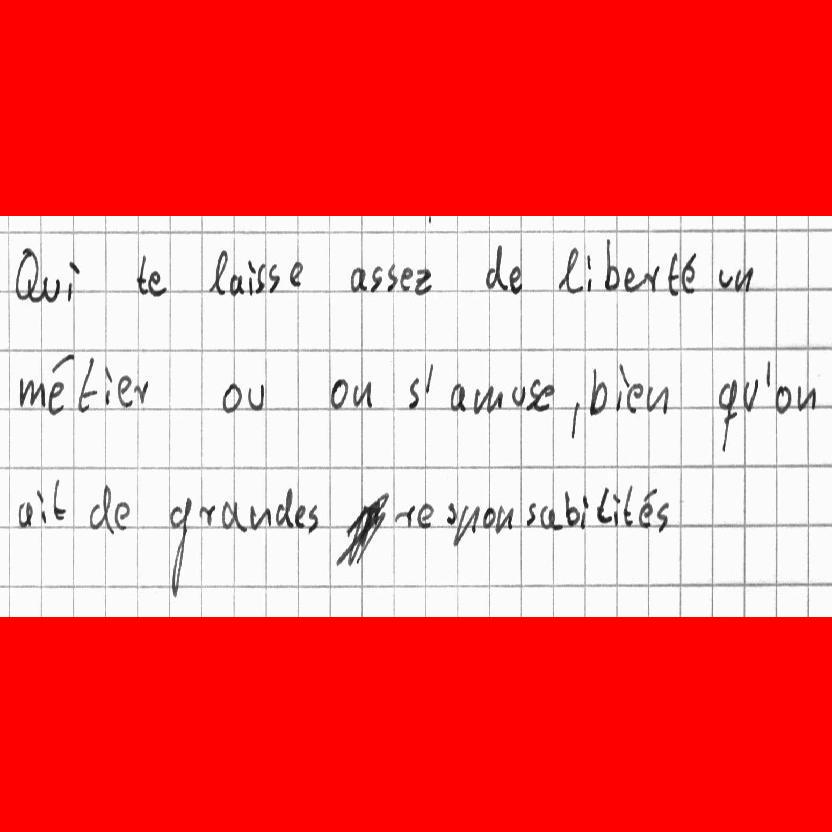 Qui te laisse assez de liberté un
métier ou on s'amuse, bien qu'on
ait de grandes responsabilités